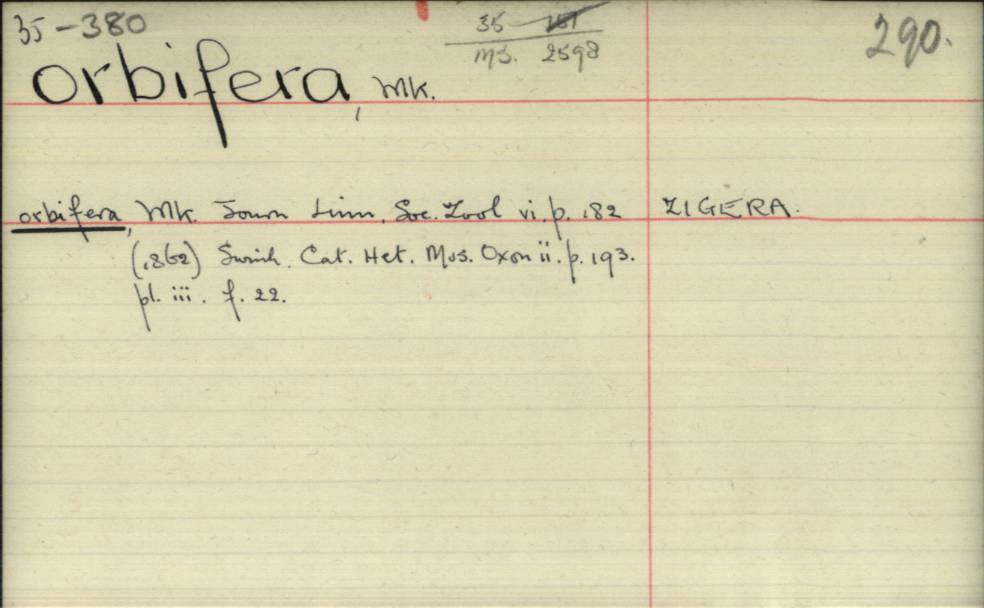 35-380
35 151
MS. 2598
290.
orbifera, Wk.
orbifera, Wk. Journ Linn. Soc. Zool vi. p. 182 ZIGERA.
(1862) Swinh. Cat. Het. Mus. Oxon ii. p. 193.
pl. iii. f. 22.